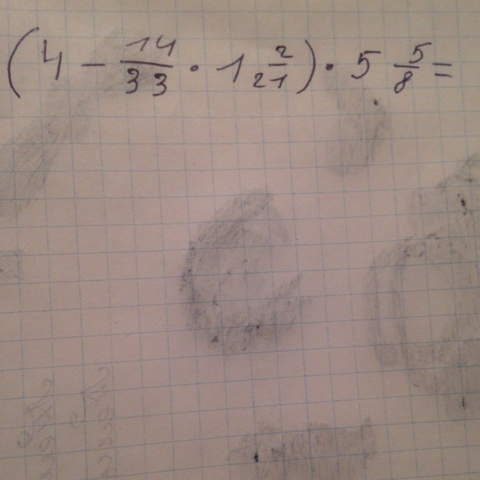 (4 - 14/33 · 1 2/21) · 5 5/8 =